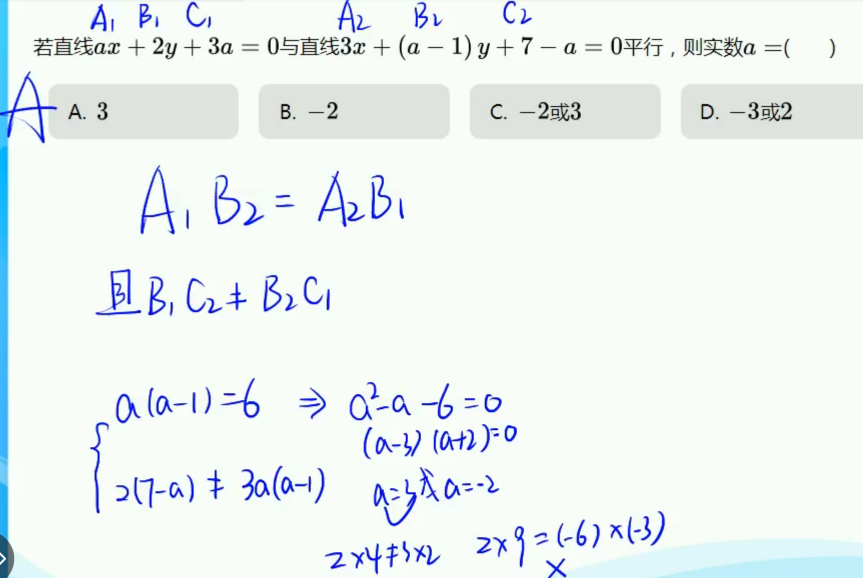 A₁ B₁ C₁ A₂ B₂ C₂
若直线ax + 2y + 3a = 0与直线3x + (a − 1) y + 7 − a = 0平行，则实数a =( )
A
A. 3 B. −2 C. −2或3 D. −3或2
A₁B₂ = A₂B₁
且B₁C₂≠B₂C₁
a(a-1)=6 ⇒ a²-a-6=0
(a-3)(a+2)=0
2(7-a) ≠ 3a(a-1) a=3或a=-2
2×4≠3×2 2×9=(-6)×(-3)
×